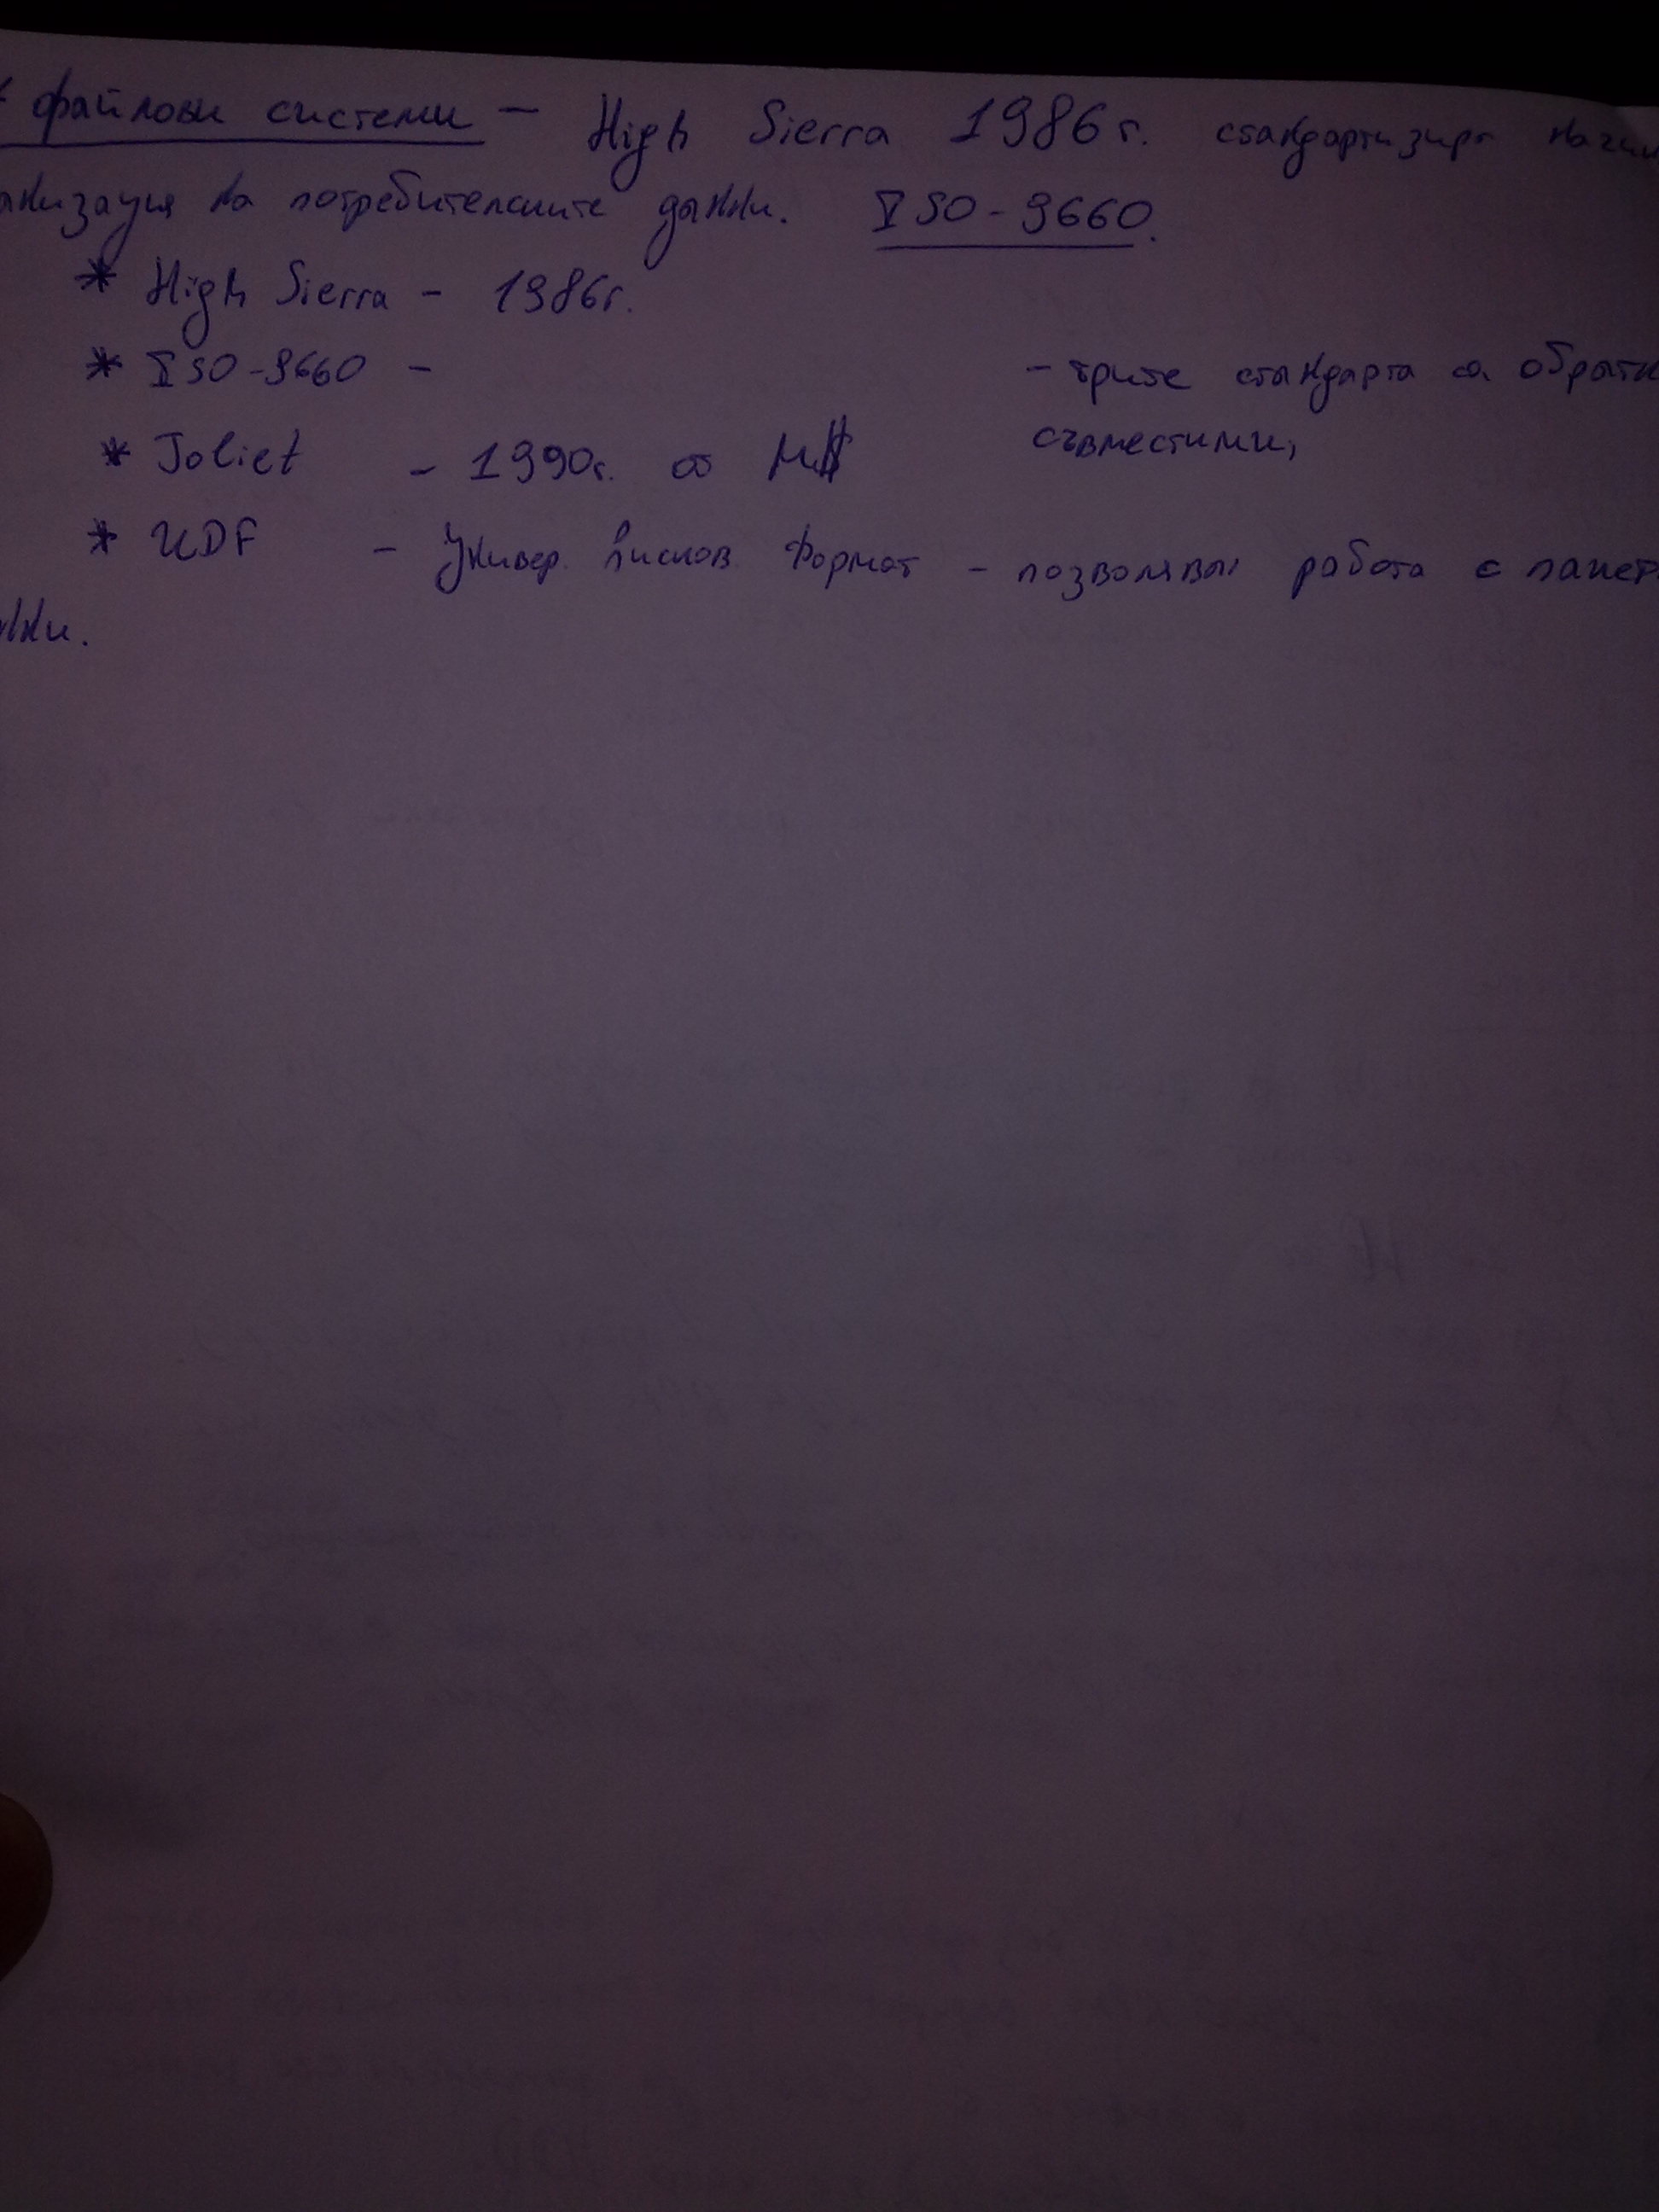 файлови системи - High Sierra 1986г. стандартизира начин
анизация на потребителските данни. ISO-9660.
* High Sierra - 1986г.
* ISO-9660 - - трите стандарта са обратн
съвместими,
* Joliet - 1990г. от M$
* UDF - Универ. Дисков Формат - позволяващ работа с пакет
нни.